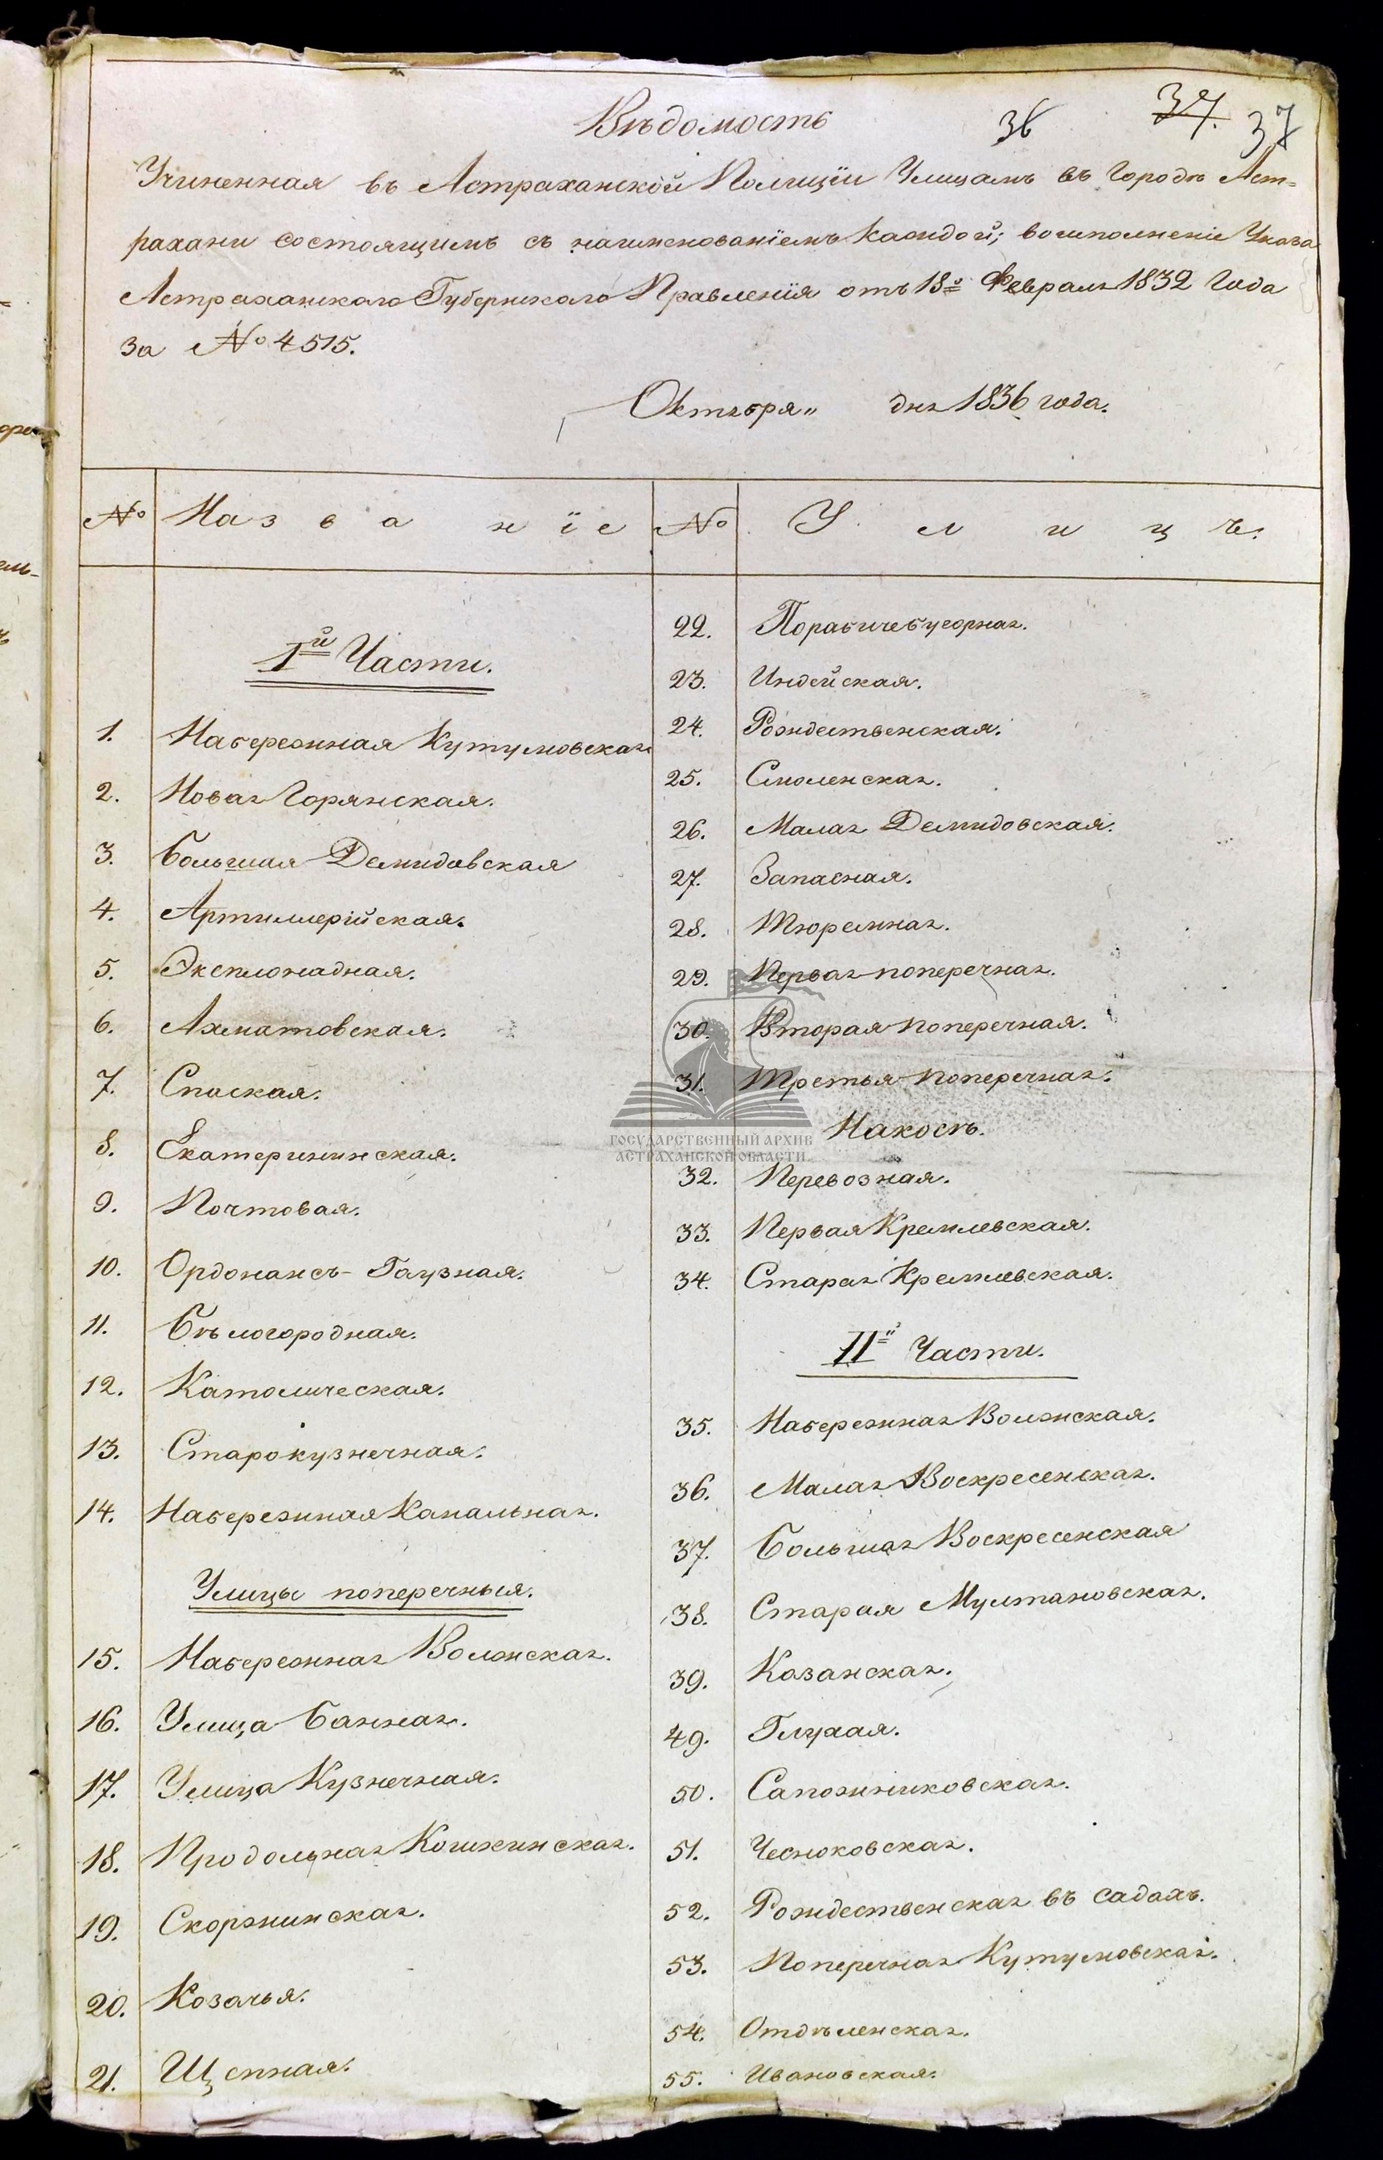 Вѣдомость
36 37. 37
Учиненная въ Астраханской Полицїи Улицамъ въ городѣ Аст-
рахани состоящимъ съ наименованїемъ каждой; во исполненіе Указа
Астраханскаго Губернскаго Правленїя отъ 18го Февраля 1832 года
за № 4515.
Октября„ дня 1836 года.
№ Названїе № Улицъ.
1й Части.
1. Набережная Кутумовская
2. Новая Горянская.
3. Большая Демидовская
4. Артиллерїйская.
5. Эксплонадная.
6. Ахматовская.
7. Спаская.
8. Екатерининская.
9. Почтовая.
10. Ордонансъ-Гаузная.
11. Бѣлогородная.
12. Католическая.
13. Старокузнечная.
14. Набережная Канальная.
Улицы поперечныя.
15. Набережная Волжская.
16. Улица Банная.
17. Улица Кузнечная.
18. Продольная Кошкинская.
19. Скоржинская.
20. Козачья.
21. Щепная.
22. Порабичебугорная.
23. Индейская.
24. Рождественская.
25. Смоленская.
26. Малая Демидовская.
27. Запасная.
28. Тюремная.
29. Первая поперечная.
30. Вторая поперечная.
31. Третья поперечная.
Накосѣ.
32. Перевозная.
33. Первая Кремлевская.
34. Старая Кремлевская.
IIй Части.
35. Набережная Волжская.
36. Малая Воскресенская.
37. Большая Воскресенская
38. Старая Мултановская.
39. Казанская.
49. Глухая.
50. Сапожниковская.
51. Чесноковская.
52. Рождественская въ садахъ.
53. Поперечная Кутумовская.
54. Отдѣленская.
55. Ивановская.
ГОСУДАРСТВЕННЫЙ АРХИВ
АСТРАХАНСКОЙ ОБЛАСТИ